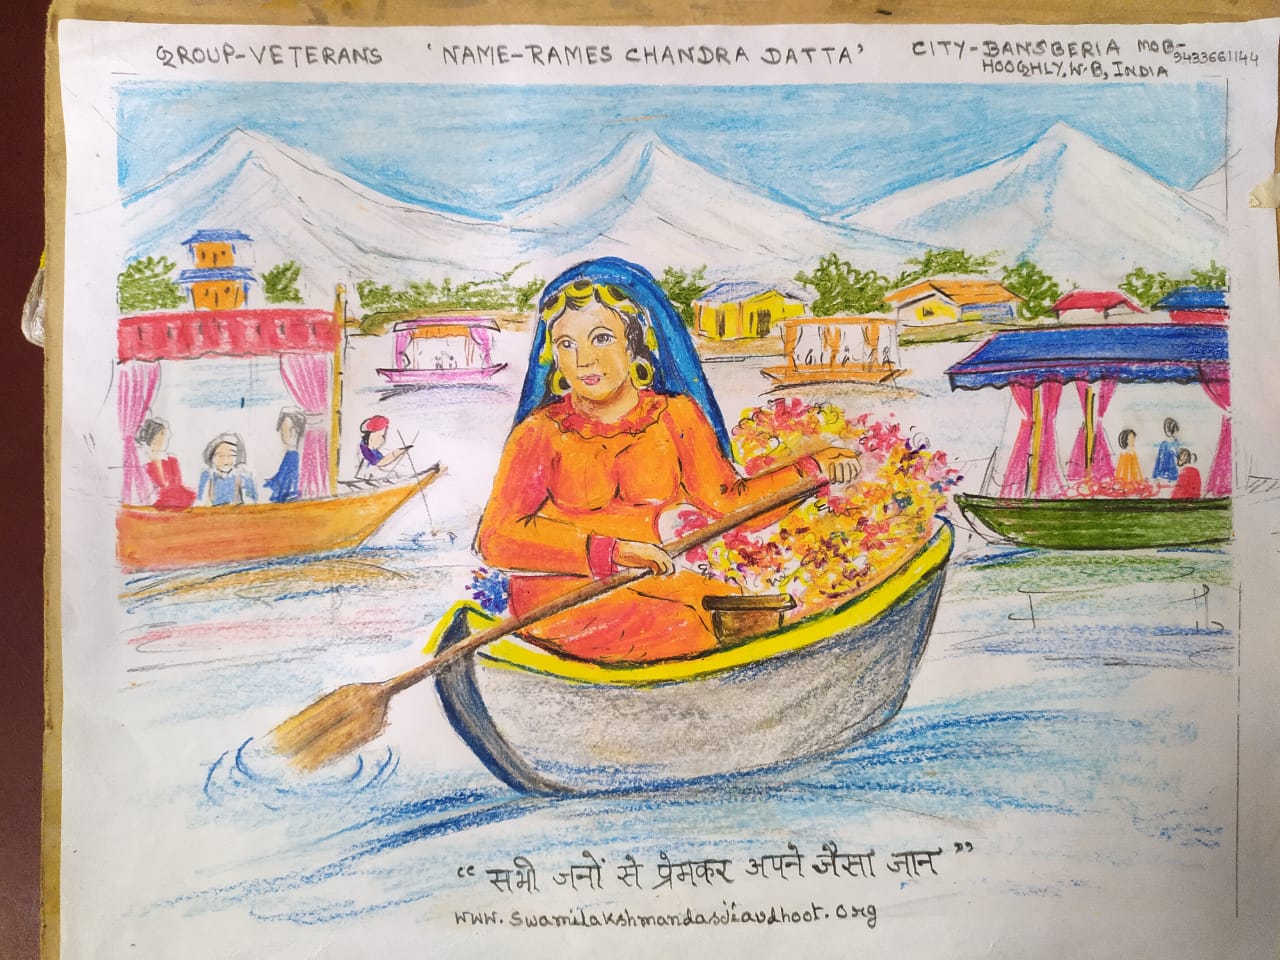 GROUP-VETERANS 'NAME-RAMES CHANDRA DATTA' CITY-BANSBERIA MOB-9433661144
HOOGHLY, W.B, INDIA
“सभी जनों से प्रेमकर अपने जैसा जान”
www.swamilakshmandasjiavdhoot.org